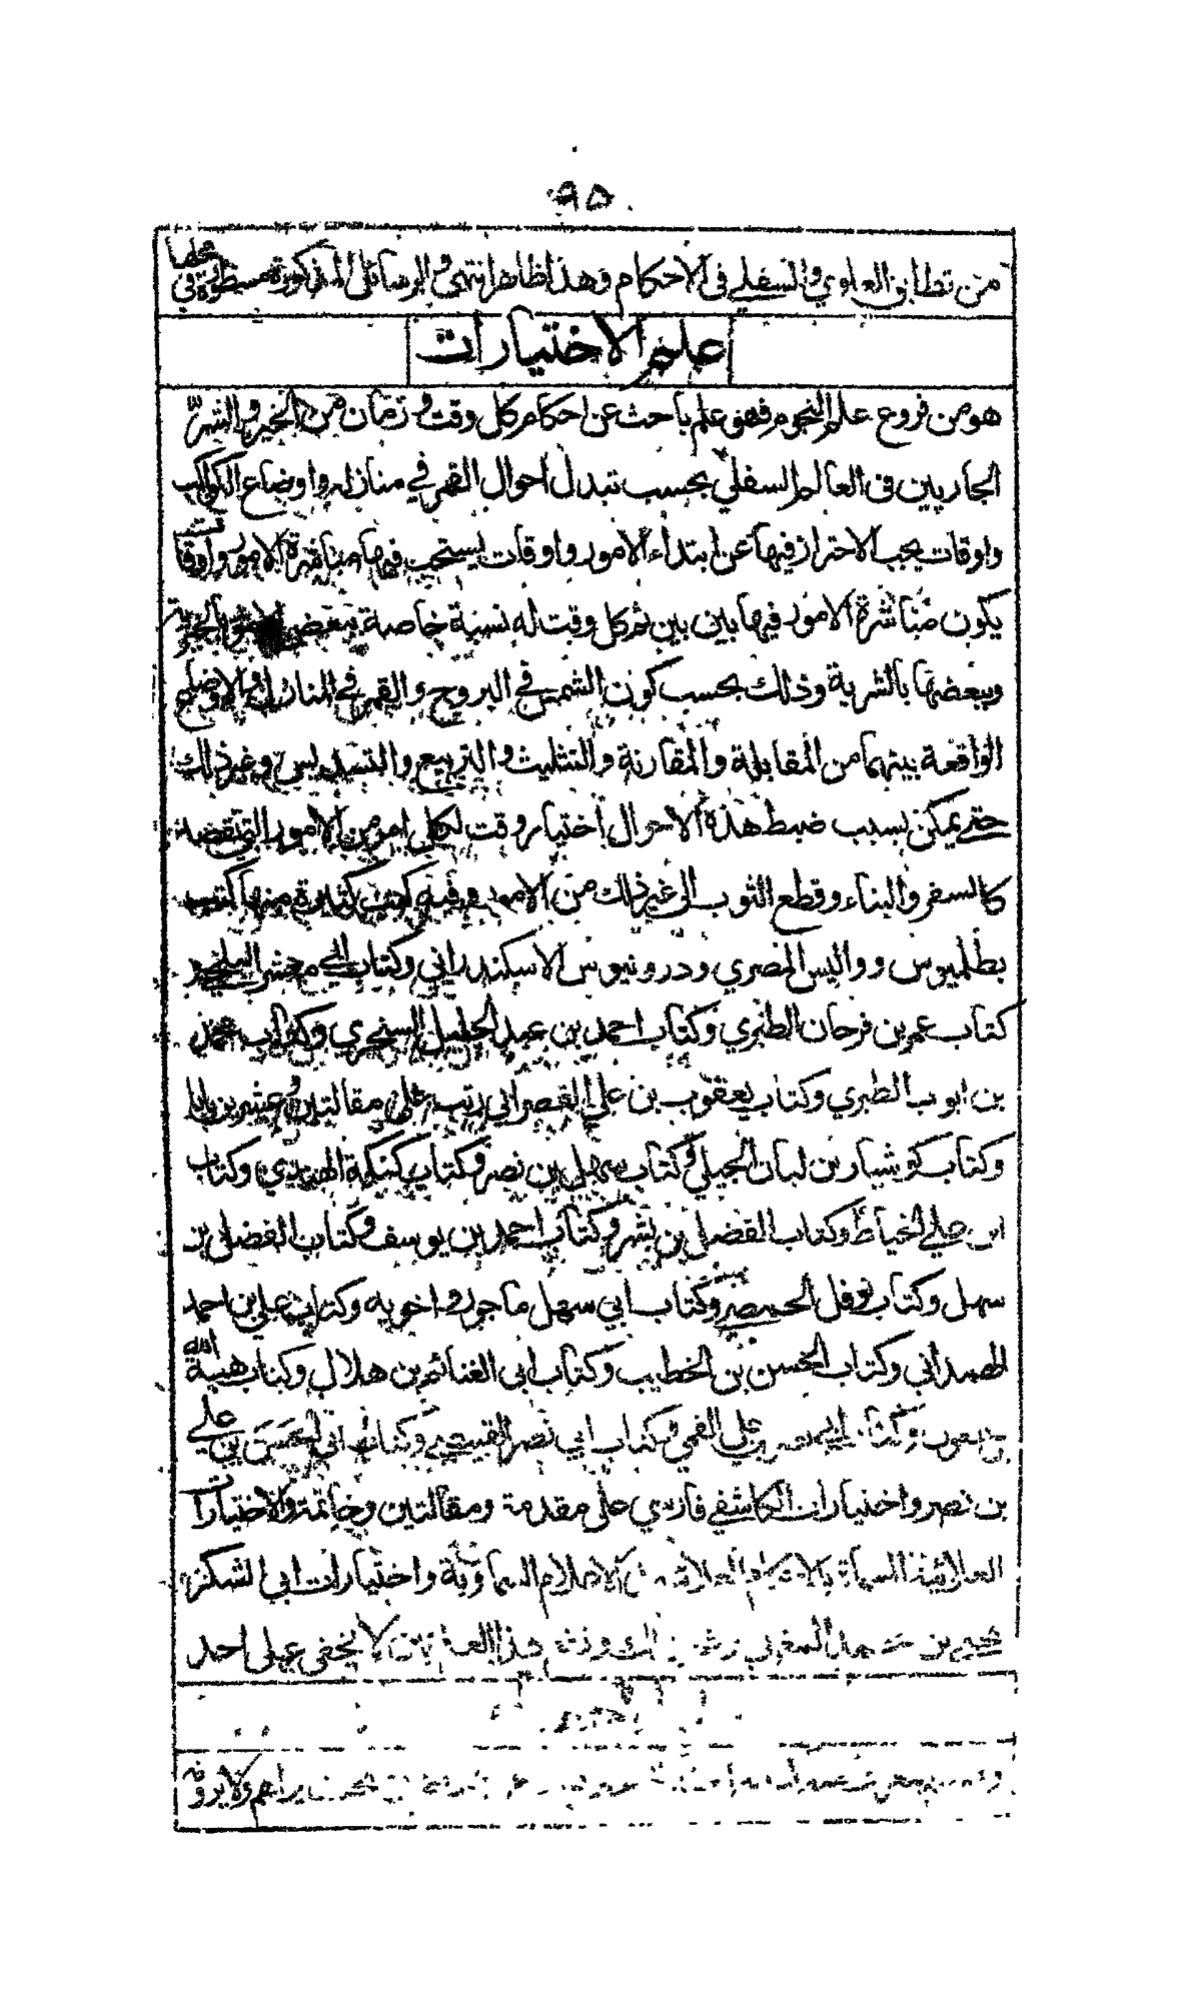 ٩٥
من تطابق العلوي والسفلي فى الاحكام وهذا ظاهر انتهى والرسائل المذكورة مسطورة في محلها
علم الاختيارات
هو من فروع علم النجوم فهو علم باحث عن احكام كل وقت و زمان من الخير والشر
الجاريين فى العالم السفلي بحسب تبدل احوال القمر في منازله واوضاع الكواكب
واوقات يجب الاحتراز فيها عن ابتداء الامور واوقات يستحب فيها مباشرة الامور واوقات
يكون مباشرة الامور فيها بين بين ثم كل وقت له نسبة خاصة ببعض الامور بالخيرية
وببعضها بالشرية وذلك بحسب كون الشمس في البروج والقمر في المنازل والاوضاع
الواقعة بينهما من المقابلة والمقارنة والتثليث والتربيع والتسديس وغير ذلك
حتى يمكن بسبب ضبط هذه الاحوال اختيار وقت لكل امر من الامور التي تقصد
كالسفر والبناء وقطع الثوب الى غير ذلك من الامور وفيه كتب كثيرة منها كتب
بطلميوس وواليس المصري ودرونيوس الاسكندراني وكتاب ابي معشر البلخي و
كتاب عمر بن فرحان الطبري وكتاب احمد بن عبد الجليل السنجري وكتاب محمد
بن ايوب الطبري وكتاب يعقوب بن علي القصراني رتبه على مقالتين وعشرين بابا
وكتاب كوشيار بن لبان الجيلي وكتاب سهل بن نصر وكتاب كنكة الهندي وكتاب
ابن علي الخياط وكتاب الفضل بن بشر وكتاب احمد بن يوسف وكتاب الفضل بن
سهل وكتاب نوفل الحمصي وكتاب ابي سهل ماجور واخويه وكتاب علي بن احمد
الهمداني وكتاب الحسن بن الخطيب وكتاب ابي الغنائم بن هلال وكتاب هبة الله
بن علي القمي وكتاب ابي نصر وكتاب ابي الحسن بن علي
بن نصر واختيارات الكاشفي فارسي على مقدمة ومقالتين وخاتمة والاختيارات
العلائية المسماة بالاحكام العلائية في الاعلام السماوية واختيارات ابي الشكر
يحيى بن محمد المغربي هذا العلم لا يخفى على احد